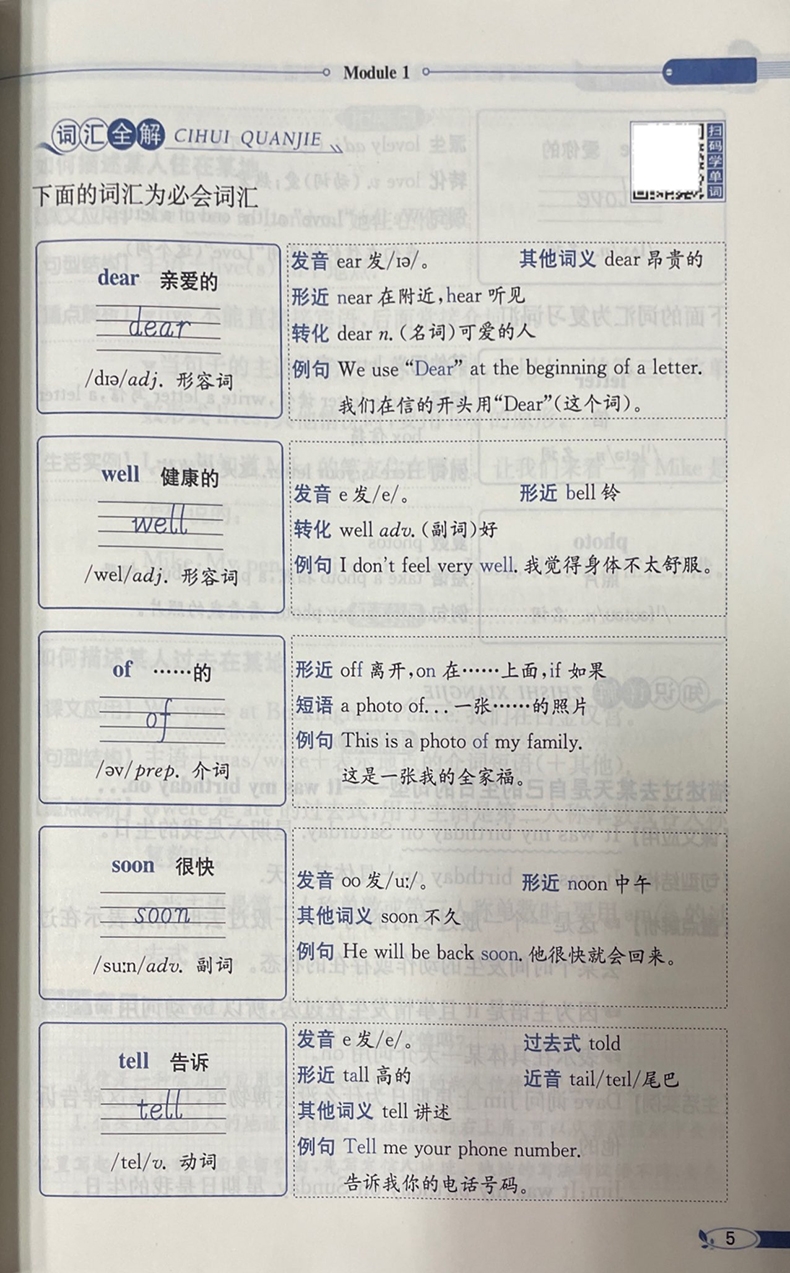 Module 1
词汇全解 CIHUI QUANJIE
扫码学单词
下面的词汇为必会词汇
dear 亲爱的
dear
/dɪə/adj. 形容词
发音 ear 发/ɪə/。 其他词义 dear 昂贵的
形近 near 在附近,hear 听见
转化 dear n. (名词)可爱的人
例句 We use “Dear” at the beginning of a letter.
我们在信的开头用“Dear”(这个词)。
well 健康的
well
/wel/adj. 形容词
发音 e 发/e/。 形近 bell 铃
转化 well adv. (副词)好
例句 I don't feel very well. 我觉得身体不太舒服。
of ……的
of
/əv/prep. 介词
形近 off 离开,on 在……上面,if 如果
短语 a photo of... 一张……的照片
例句 This is a photo of my family.
这是一张我的全家福。
soon 很快
soon
/suːn/adv. 副词
发音 oo 发/uː/。 形近 noon 中午
其他词义 soon 不久
例句 He will be back soon. 他很快就会回来。
tell 告诉
tell
/tel/v. 动词
发音 e 发/e/。 过去式 told
形近 tall 高的 近音 tail/teɪl/尾巴
其他词义 tell 讲述
例句 Tell me your phone number.
告诉我你的电话号码。
5